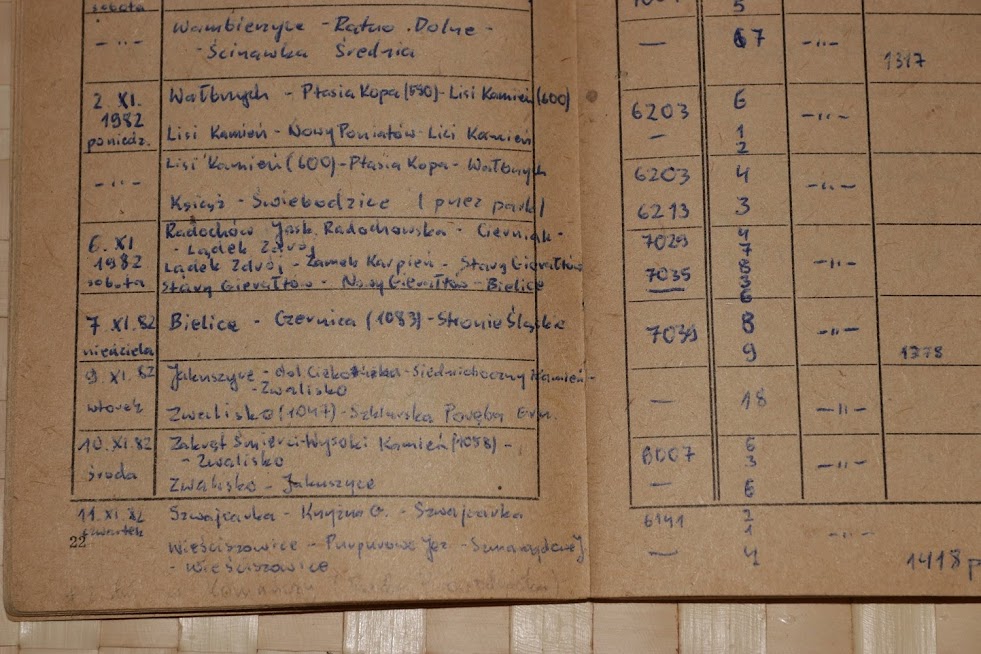 sobota
Wambierzyce - Ratno Dolne -
-"- - Ścinawka Średnia 67 -"- 1317
2. XI. 1982 poniedz.
Wałbrzych - Ptasia Kopa (590) - Lisi Kamień (600) 6203 6 -"-
Lisi Kamień - Nowy Poniatów - Lisi Kamień — 1 2
-"- Lisi Kamień (600) - Ptasia Kopa - Wałbrzych 6203 4 -"-
Książ - Świebodzice (przez park) 6213 3
6. XI 1982 sobota
Radochów Jask. Radochowska - Cierniak - 7029 4
- Lądek Zdrój 7
Lądek Zdrój - Zamek Karpień - Stary Gierałtów 7035 8 3 -"-
Stary Gierałtów - Nowy Gierałtów - Bielice — 6
7. XI.82 niedziela
Bielice - Czernica (1083) - Stronie Śląskie 7039 8 9 -"- 1378
9. XI.82 wtorek
Jakuszyce - dol. - Siedmioboczny Kamień -
- Zwalisko — 18 -"-
Zwalisko (1047) - Szklarska Poręba
10. XI.82 środa
Zakręt Śmierci - Wysoki Kamień (1058) - 6
- Zwalisko 3 -"-
Zwalisko - Jakuszyce — 6
11. XI 82 czwartek
Szwajcarka - Krzyżna G. - Szwajcarka 6141 2 1 -"-
22
Wieściszowice - Purpurowe Jez. - — 4 1418 p
- Wieściszowice